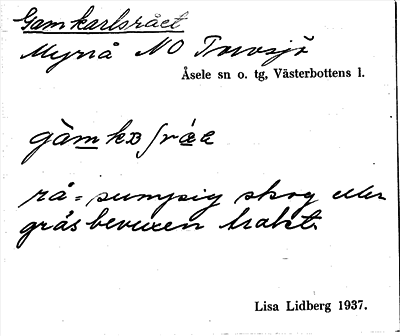 Gamkarlsrået
Myrå NO Torvsjö
Åsele sn o. tg, Västerbottens l.
rå = sumpig skog eller
gräsbevuxen trakt.
Lisa Lidberg 1937.